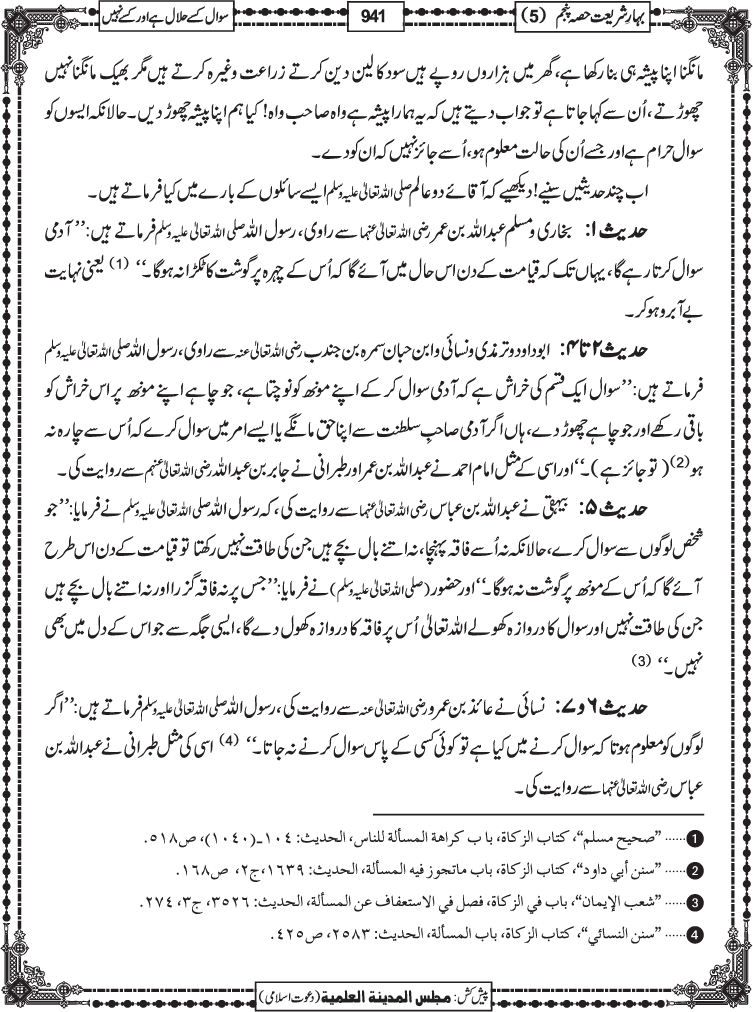 بہارِ شریعت حصہ پنجم (5)
941
سوال کسے حلال ہے اور کسے نہیں
مانگنا اپنا پیشہ ہی بنا رکھا ہے، گھر میں ہزاروں روپے ہیں سود کا لین دین کرتے زراعت وغیرہ کرتے ہیں مگر بھیک مانگنا نہیں
چھوڑتے، اُن سے کہا جاتا ہے تو جواب دیتے ہیں کہ یہ ہمارا پیشہ ہے واہ صاحب واہ! کیا ہم اپنا پیشہ چھوڑ دیں۔ حالانکہ ایسوں کو
سوال حرام ہے اور جسے اُن کی حالت معلوم ہو، اُسے جائز نہیں کہ ان کو دے۔
اب چند حدیثیں سنیے! دیکھیے کہ آقائے دو عالم صلی اللہ تعالیٰ علیہ وسلم ایسے سائلوں کے بارے میں کیا فرماتے ہیں۔
حدیث ۱: بخاری و مسلم عبداللہ بن عمر رضی اللہ تعالیٰ عنہما سے راوی، رسول اللہ صلی اللہ تعالیٰ علیہ وسلم فرماتے ہیں: ’’آدمی
سوال کرتا رہے گا، یہاں تک کہ قیامت کے دن اس حال میں آئے گا کہ اُس کے چہرہ پر گوشت کا ٹکڑا نہ ہوگا۔‘‘ (1) یعنی نہایت
بے آبرو ہوکر۔
حدیث ۲ تا ۴: ابو داود و ترمذی و نسائی و ابن حبان سمرہ بن جندب رضی اللہ تعالیٰ عنہ سے راوی، رسول اللہ صلی اللہ تعالیٰ علیہ وسلم
فرماتے ہیں: ’’سوال ایک قسم کی خراش ہے کہ آدمی سوال کر کے اپنے مونھ کو نوچتا ہے، جو چاہے اپنے مونھ پر اس خراش کو
باقی رکھے اور جو چاہے چھوڑ دے، ہاں اگر آدمی صاحبِ سلطنت سے اپنا حق مانگے یا ایسے امر میں سوال کرے کہ اُس سے چارہ نہ
ہو(2) (تو جائز ہے)۔‘‘ اور اسی کے مثل امام احمد نے عبداللہ بن عمر اور طبرانی نے جابر بن عبداللہ رضی اللہ تعالیٰ عنہم سے روایت کی۔
حدیث ۵: بیہقی نے عبداللہ بن عباس رضی اللہ تعالیٰ عنہما سے روایت کی، کہ رسول اللہ صلی اللہ تعالیٰ علیہ وسلم نے فرمایا: ’’جو
شخص لوگوں سے سوال کرے، حالانکہ نہ اُسے فاقہ پہنچا، نہ اتنے بال بچے ہیں جن کی طاقت نہیں رکھتا تو قیامت کے دن اس طرح
آئے گا کہ اُس کے مونھ پر گوشت نہ ہوگا۔‘‘ اور حضور (صلی اللہ تعالیٰ علیہ وسلم) نے فرمایا: ’’جس پر نہ فاقہ گزرا اور نہ اتنے بال بچے ہیں
جن کی طاقت نہیں اور سوال کا دروازہ کھولے اللہ تعالیٰ اُس پر فاقہ کا دروازہ کھول دے گا، ایسی جگہ سے جو اس کے دل میں بھی
نہیں۔‘‘ (3)
حدیث ۶ و ۷: نسائی نے عائذ بن عمرو رضی اللہ تعالیٰ عنہ سے روایت کی، رسول اللہ صلی اللہ تعالیٰ علیہ وسلم فرماتے ہیں: ’’اگر
لوگوں کو معلوم ہوتا کہ سوال کرنے میں کیا ہے تو کوئی کسی کے پاس سوال کرنے نہ جاتا۔‘‘ (4) اسی کی مثل طبرانی نے عبداللہ بن
عباس رضی اللہ تعالیٰ عنہما سے روایت کی۔
1 ...... ”صحیح مسلم“، کتاب الزکاۃ، باب کراهة المسألة للناس، الحدیث: ۱۰۴۔(۱۰۴۰)، ص۵۱۸.
2 ...... ”سنن أبي داود“، کتاب الزکاۃ، باب ماتجوز فیه المسألة، الحدیث: ۱۶۳۹، ج۲، ص۱۶۸.
3 ...... ”شعب الإیمان“، باب في الزکاۃ، فصل في الاستعفاف عن المسألة، الحدیث: ۳۵۲۶، ج۳، ۲۷۴.
4 ...... ”سنن النسائي“، کتاب الزکاۃ، باب المسألة، الحدیث: ۲۵۸۳، ص۴۲۵.
پیش کش: مجلس المدینة العلمیة (دعوت اسلامی)